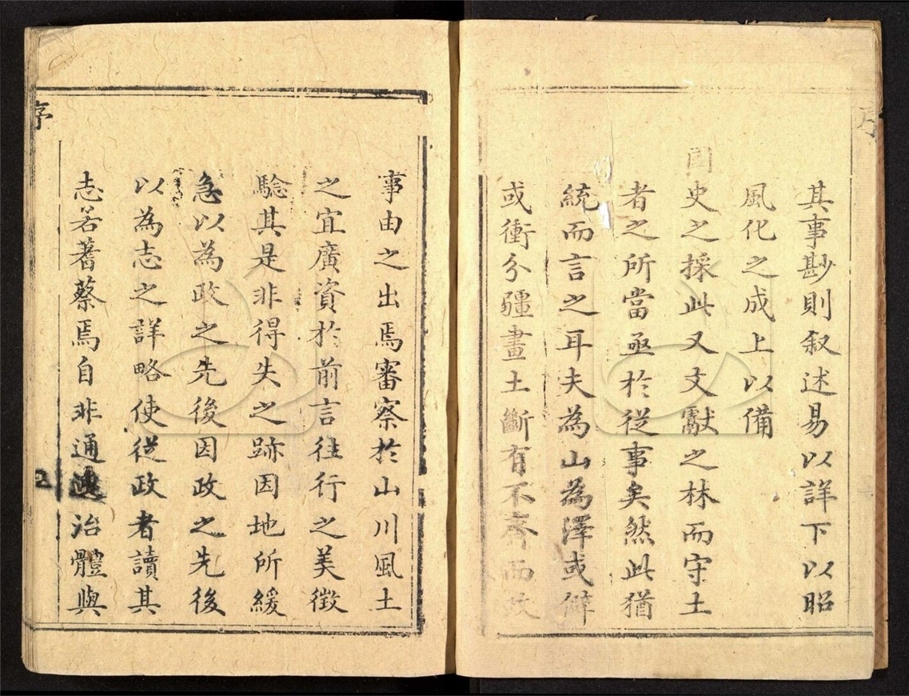 其事尠則叙述易以詳下以昭
風化之成上以備
國史之採此又文獻之林而守土
者之所當亟於從事矣然此猶
統而言之耳夫為山為澤或僻
或衝分疆畫土斷有不齊而政
事由之出焉審察於山川風土
之宜廣資於前言往行之美徵
騐其是非得失之跡因地所緩
急以為政之先後因政之先後
以為志之詳略使從政者讀其
志若蓍蔡焉自非通達治體與
序